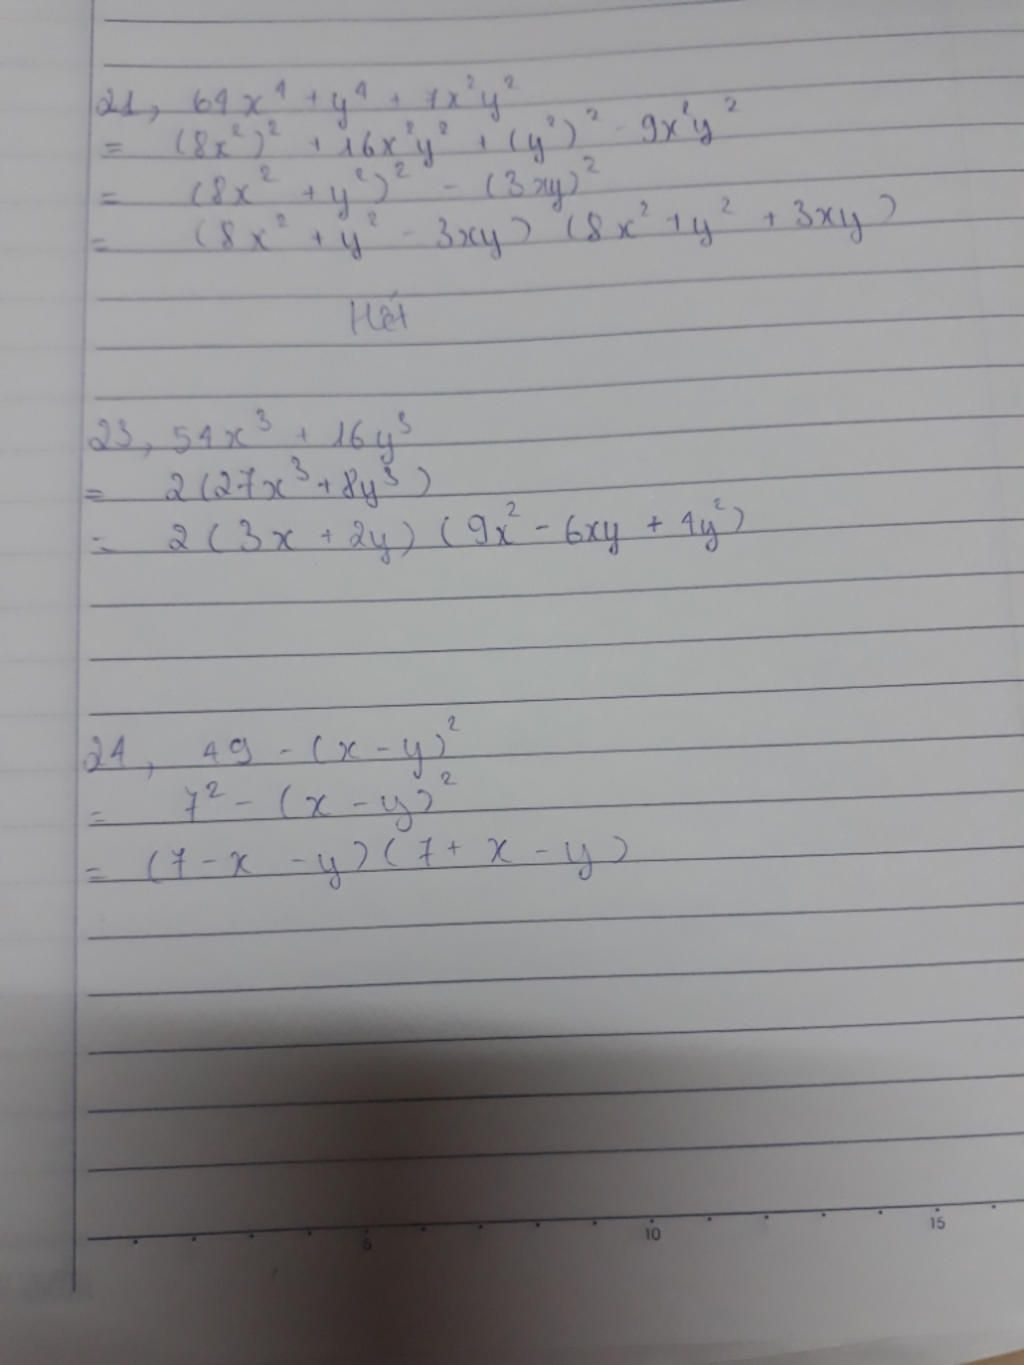 21, 64x⁴ + y⁴ + 7x²y²
= (8x²)² + 16x²y² + (y²)² - 9x²y²
= (8x² + y²)² - (3xy)²
= (8x² + y² - 3xy) (8x² + y² + 3xy)
Hết
23, 54x³ + 16y³
= 2(27x³ + 8y³)
= 2(3x + 2y) (9x² - 6xy + 4y²)
24, 49 - (x - y)²
= 7² - (x - y)²
= (7 - x - y)(7 + x - y)
5 10 15